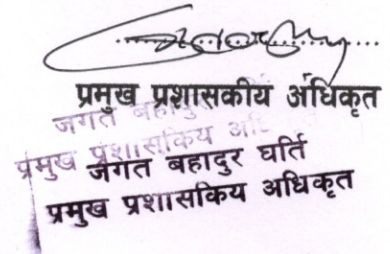 प्रमुख प्रशासकीय अधिकृत
जगत बहादुर
प्रमुख प्रशासकिय अधि
जगत बहादुर घर्ति
प्रमुख प्रशासकिय अधिकृत